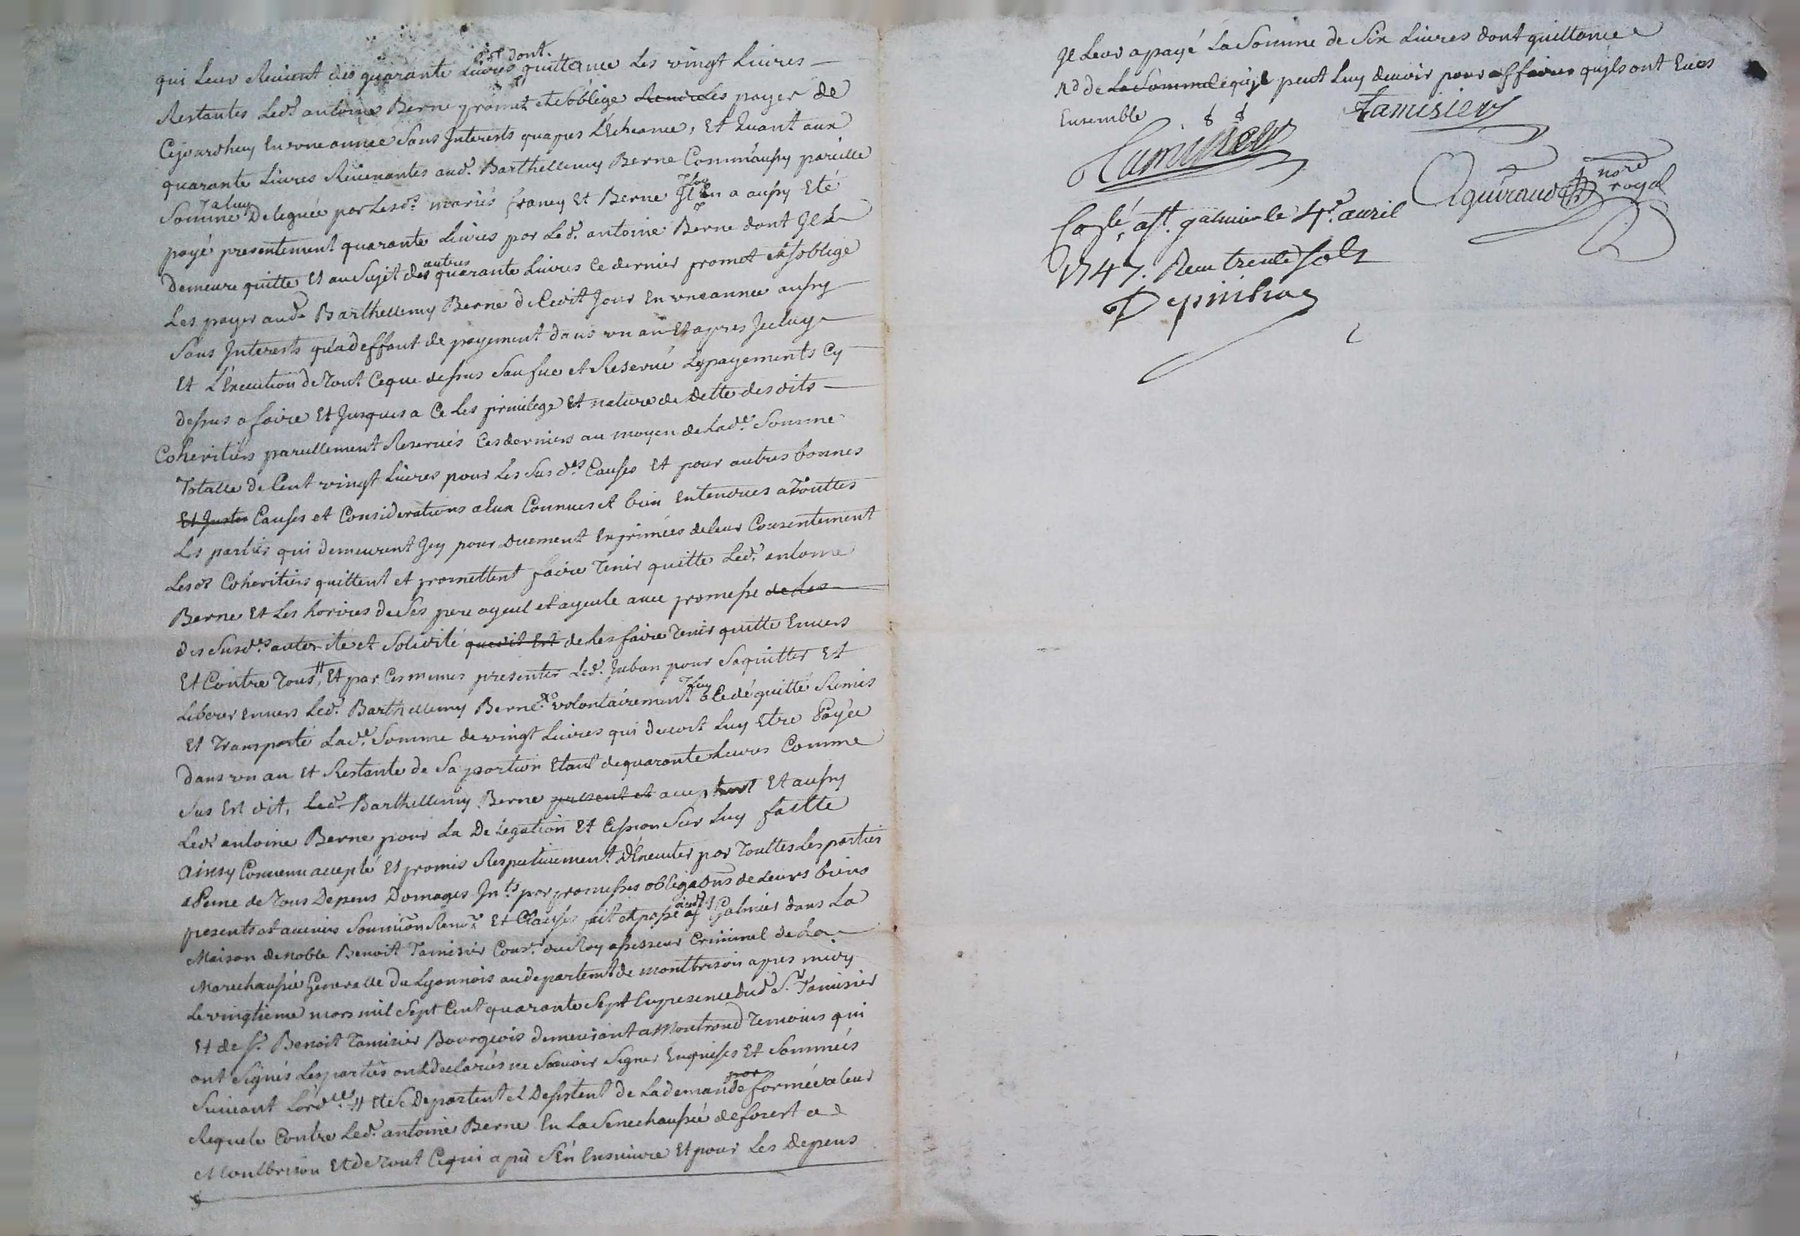 qui leur Revient des quarante Livres est dont quittance Les vingt Livres
Restantes Led. antoine Berne promet et soblige Les payer de
Cejourdhuy En une année Sans Interests quapres L'Echeance, Et Quant aux
quarante Livres Revenantes aud. Barthellemy Berne Comm'aussy pareille
Somme a luy Deleguée par Lesd. mariés francy Et Berne Il En a aussy Eté
payé presentement quarante Livres par Led. antoine Berne dont Il Le
demeure quitte Et au Sujet des autres quarante Livres Ce dernier promet et soblige
Les payer aud. Barthellemy Berne de Ceoit Jour En une année aussy
Sans Interests qu'adeffaut de payement dans un an Et apres Iceluy
Et L'Execution de Tout Ceque dessus Sauf et Reservé Les payements Cy
dessus a faire Et Jusques a Ce Les privilege Et nature de Dette desdits
Coheritiers pareillement Reservés Ces derniers au moyen de Lade. Somme
Totalle de Cent vingt Livres pour Les Susdes. Causes Et pour autres bonnes
Et Justes Causes et Considerations a Eux Connues et bien Entendues a Touttes
Les parties qui demeurent Icy pour Duement Exprimées de leur Consentement
Lesds Coheritiers quittent et promettent faire Tenir quitte Led. antoine
Berne Et Les hoiries de Ses pere ayeul et ayeule avec promesse de Les
des Susdes. autorité et Solidité de Les faire Tenir quitte Envers
Et Contre Tous, Et par Ces memes presentes Led. Juban pour S'aquitter Et
Liberer Envers Led. Barthellemy Berne volontairement Cedé quitté Remis
Et Transporté Lade. Somme de vingt Livres qui devoit Luy Etre Payée
dans un an Et Restante de Sa portion Etant de quarante Livres Comme
Sus Est dit, Led. Barthellemy Berne present et acceptant Et aussy
Led. antoine Berne pour La Delegation Et Cession Sur Luy faitte
Ainsy Convenu accepté Et promis Respectivement D'Executer par Touttes Les parties
a Peine de Tous Depens Domages Ints. par promesses obligaons de Leurs biens
presents et avenirs Soumion Renon. Et Clauses fait et passé aud. st Galmier dans La
Maison de noble Benoit Tamisier Consr. du Roy assesseur Criminel de La
Marechaussée Generalle du Lyonnois au departemt. de montbrison apres midy
Le vingtieme mars mil Sept Cent quarante Sept En presence dud. Sr. Tamisier
Et de Sr. Benoit Tamisier Bourgeois demeurant a Montrond Temoins qui
ont Signés Les parties ont declarés ne Scavoir Signer Enquises Et Sommées
Suivant L'ordce. Et Se Departent Et Desistent de La demande par formée a leur
Requete Contre Led. antoine Berne En La Senechaussée de forest a
Montbrison Et de Tout Ce qui a pû S'En Ensuivre Et pour Les Depens
Il Leur a payé La Somme de Six Livres dont quittance
La Somme qu'il peut Luy devoir pour affaires qu'ils ont Eues
Ensemble
Tamisier
Tamisier
Aguiraud nore. royal
Conlé. a st. galmier le 4e. avril
1747. Reçu trente sols
Depinhac